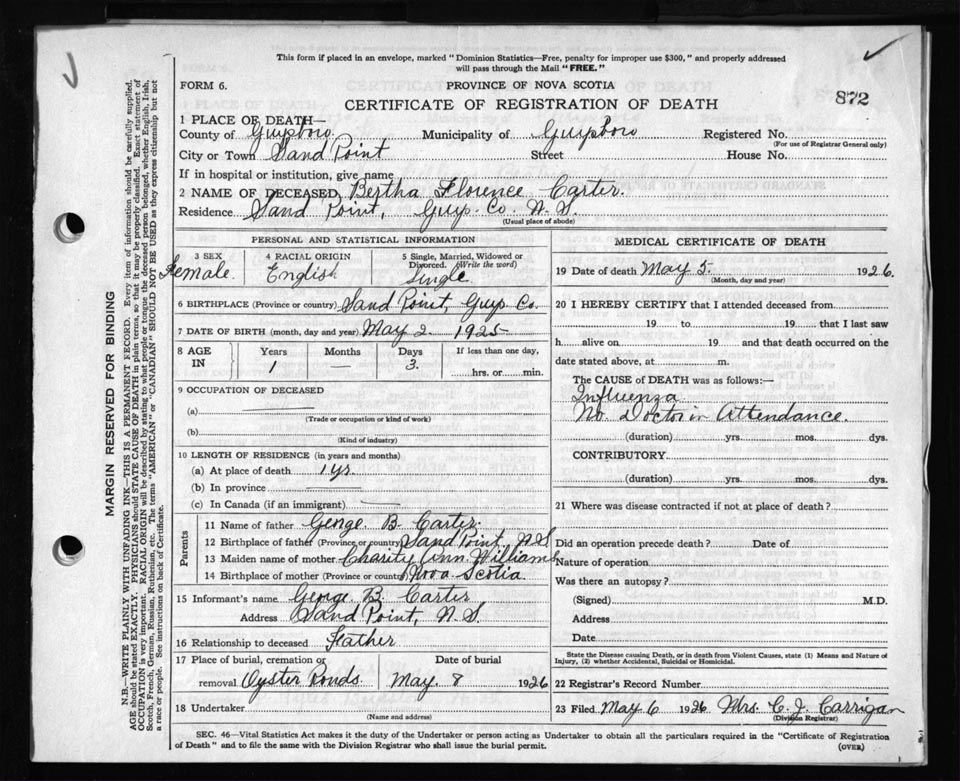 This form if placed in an envelope, marked "Dominion Statistics—Free, penalty for improper use $300," and properly addressed
will pass through the Mail "FREE."
FORM 6.
PROVINCE OF NOVA SCOTIA
CERTIFICATE OF REGISTRATION OF DEATH
872
1 PLACE OF DEATH—
County of Guysboro Municipality of Guysboro Registered No.
(For use of Registrar General only)
City or Town Sand Point Street House No.
If in hospital or institution, give name
2 NAME OF DECEASED Bertha Florence Carter.
Residence Sand Point, Guys. Co. N.S.
(Usual place of abode)
PERSONAL AND STATISTICAL INFORMATION
3 SEX 4 RACIAL ORIGIN 5 Single, Married, Widowed or Divorced. (Write the word)
Female. English Single
6 BIRTHPLACE (Province or country) Sand Point, Guys Co.
7 DATE OF BIRTH (month, day and year) May 2 1925
8 AGE IN Years Months Days If less than one day,
1 — 3. hrs. or min.
9 OCCUPATION OF DECEASED
(a)
(Trade or occupation or kind of work)
(b)
(Kind of industry)
10 LENGTH OF RESIDENCE (in years and months)
(a) At place of death 1 yr.
(b) In province
(c) In Canada (if an immigrant)
Parents
11 Name of father George B. Carter.
12 Birthplace of father (Province or country) Sand Point, N.S
13 Maiden name of mother Charity Ann Williams
14 Birthplace of mother (Province or country) Nova Scotia
15 Informant's name George B. Carter
Address Sand Point, N.S.
16 Relationship to deceased Father
17 Place of burial, cremation or Date of burial
removal Oyster Ponds May 8 1926
18 Undertaker
(Name and address)
MEDICAL CERTIFICATE OF DEATH
19 Date of death May 5. 1926.
(Month, day and year)
20 I HEREBY CERTIFY that I attended deceased from
19 to 19 that I last saw
h alive on 19 and that death occurred on the
date stated above, at m.
The CAUSE of DEATH was as follows:—
Influenza
No. Doctor in Attendance.
(duration) yrs. mos. dys.
CONTRIBUTORY
(duration) yrs. mos. dys.
21 Where was disease contracted if not at place of death?
Did an operation precede death? Date of
Nature of operation
Was there an autopsy?
(Signed) M.D.
Address
Date
State the Disease causing Death, or in death from Violent Causes, state (1) Means and Nature of
Injury, (2) whether Accidental, Suicidal or Homicidal.
22 Registrar's Record Number
23 Filed May 6 1926 Mrs. C. J. Carrigan
(Division Registrar)
SEC. 46—Vital Statistics Act makes it the duty of the Undertaker or person acting as Undertaker to obtain all the particulars required in the "Certificate of Registration
of Death" and to file the same with the Division Registrar who shall issue the burial permit.
(OVER)
MARGIN RESERVED FOR BINDING
N.B.—WRITE PLAINLY WITH UNFADING INK—THIS IS A PERMANENT RECORD. Every item of information should be carefully supplied.
AGE should be stated EXACTLY. PHYSICIANS should STATE CAUSE OF DEATH in plain terms, so that it may be properly classified. Exact statement of
OCCUPATION is very important. RACIAL ORIGIN will be described by stating to what people or tongue the deceased person belonged, whether English, Irish,
Scotch, French, German, Russian, Ruthenian, etc. The terms "AMERICAN" or "CANADIAN" SHOULD NOT BE USED as they express citizenship but not
a race or people. See instructions on back of Certificate.